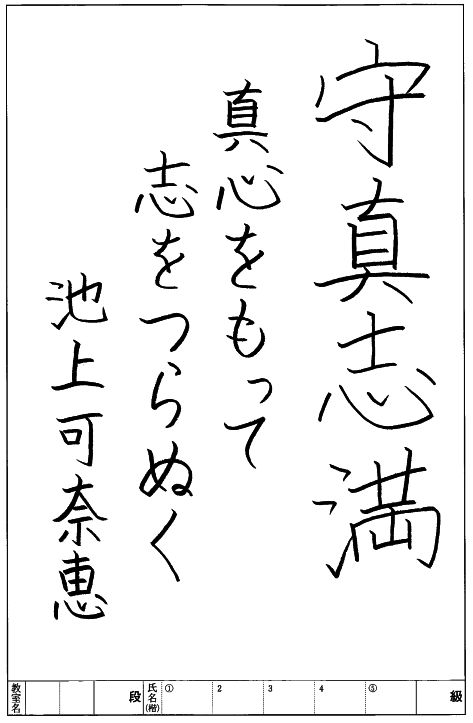 守真志満
真心をもって
志をつらぬく
池上可奈恵
教室名
段
氏名(楷)
① 2 3 4 ⑤
級